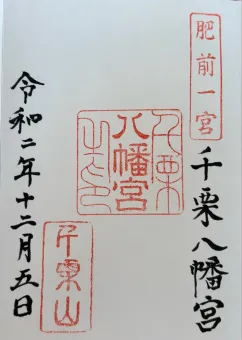 肥前一宮
千栗八幡宮
千栗
八幡宮
之印
令和二年十二月五日
千栗山